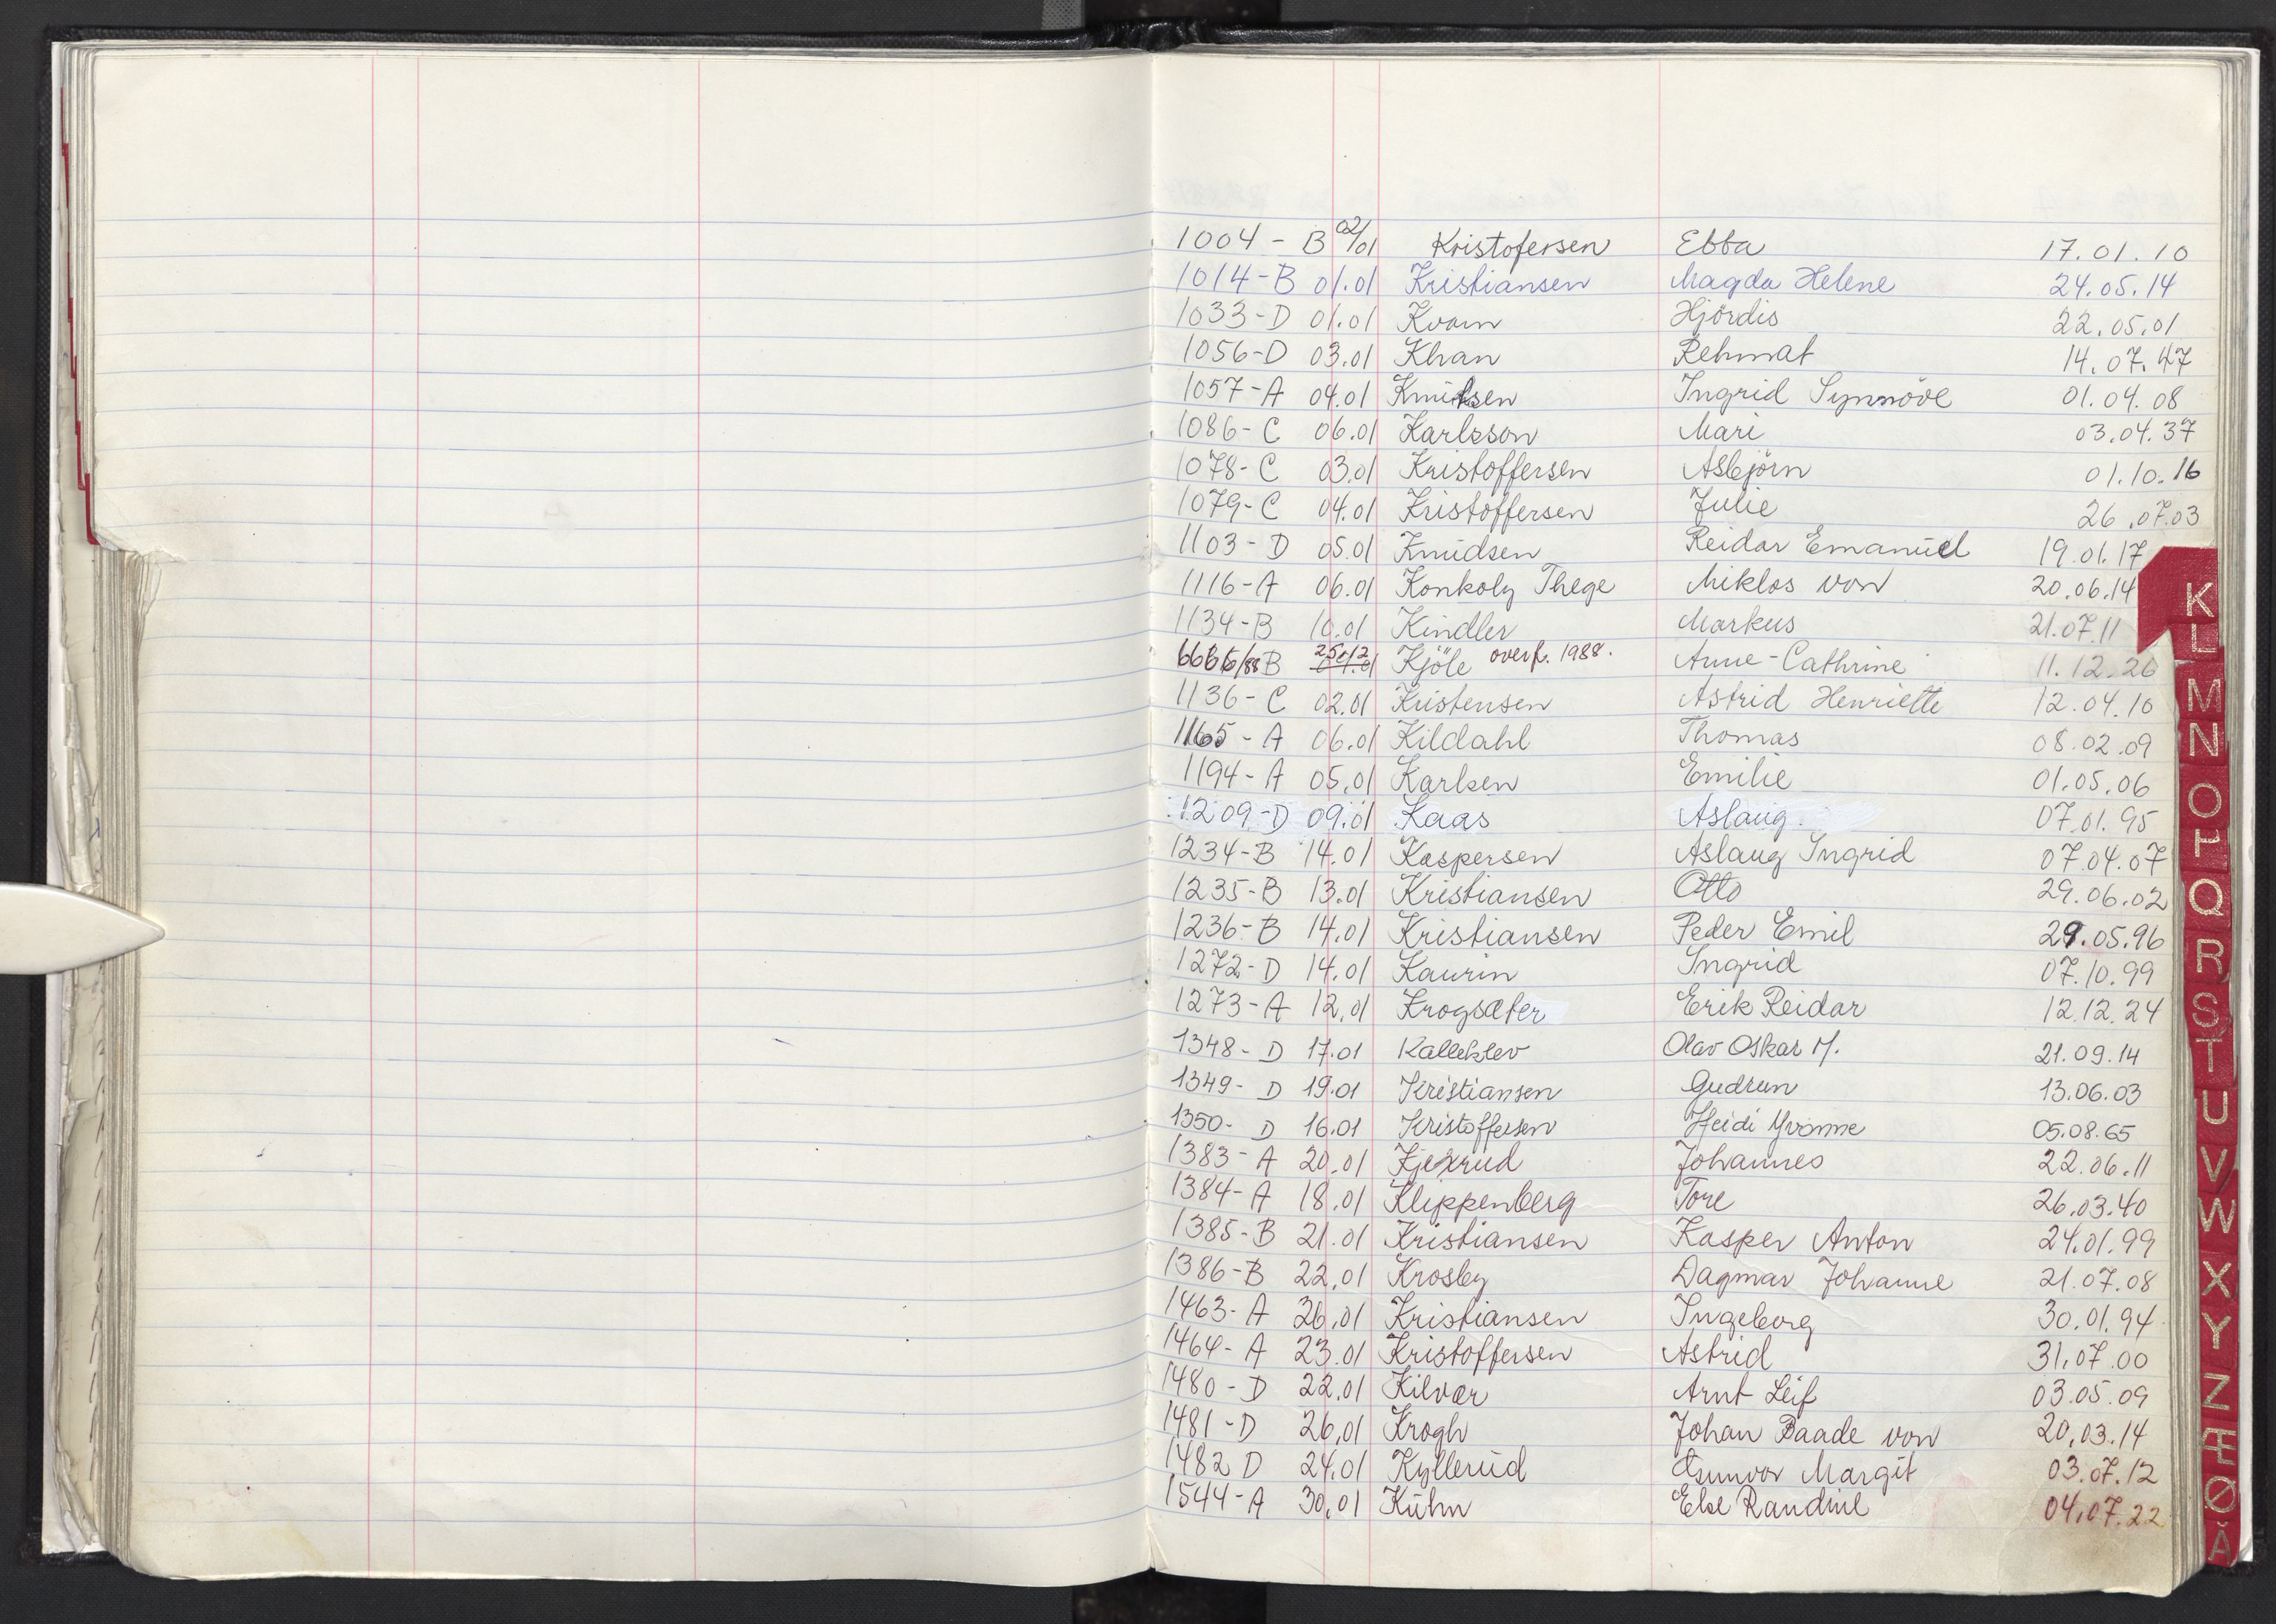 1004 - B 02/01 Kristofersen Ebba 17.01.10
1014-B 01.01 Kristiansen Magda Helene 24.05.14
1033-D 01.01 Kvam Hjördis 22.05.01
1056-D 03.01 Khan Rehmat 14.07.47
1057-A 04.01 Knutsen Ingrid Synnöve 01.04.08
1086-C 06.01 Karlsson Mari 03.04.37
1078-C 03.01 Kristoffersen Asbjörn 01.10.16
1079-C 04.01 Kristoffersen Julie 26.07.03
1103-D 05.01 Knudsen Reidar Emanuel 19.01.17
1116-A 06.01 Konkoly Thege Miklos von 20.06.14
1134-B 10.01 Kindler Markus 21.07.11
6666/88 B 25.12 Kjöle overf. 1988. Anne-Cathrine 11.12.26
1136-C 02.01 Kristensen Astrid Henriette 12.04.10
1165-A 06.01 Kildahl Thomas 08.02.09
1194-A 05.01 Karlsen Emilie 01.05.06
1209-D 09.01 Kaas Aslaug. 07.01.95
1234-B 14.01 Kaspersen Aslaug Ingrid 07.04.07
1235-B 13.01 Kristiansen Otto 29.06.02
1236-B 14.01 Kristiansen Peder Emil 29.05.96
1272-D 14.01 Kaurin Ingrid 07.10.99
1273-A 12.01 Krogsæter Erik Reidar 12.12.24
1348-D 17.01 Kalleklev Olav Oskar M. 21.09.14
1349-D 19.01 Kristiansen Gudrun 13.06.03
1350-D 16.01 Kristoffersen Heidi Yvonne 05.08.65
1383-A 20.01 Kjexrud Johannes 22.06.11
1384-A 18.01 Klippenberg Tore 26.03.40
1385-B 21.01 Kristiansen Kasper Anton 24.01.99
1386-B 22.01 Krosby Dagmar Johanne 21.07.08
1463-A 26.01 Kristiansen Ingeborg 30.01.94
1464-A 23.01 Kristoffersen Astrid 31.07.00
1480-D 22.01 Kilvær Arnt Leif 03.05.09
1481-D 26.01 Krogh Johan Paade von 20.03.14
1482 D 24.01 Kyllerud Gunvor Margit 03.07.12
1544-A 30.01 Kühn Else Randine 04.07.22
K
L
M
N
O
P
Q
R
S
T
U
V
W
X
Y
Z
Æ
Ø
Å